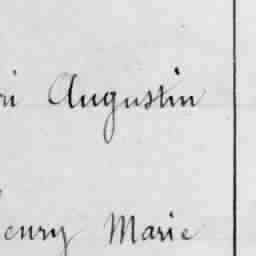 ri Augustin
Henry Marie